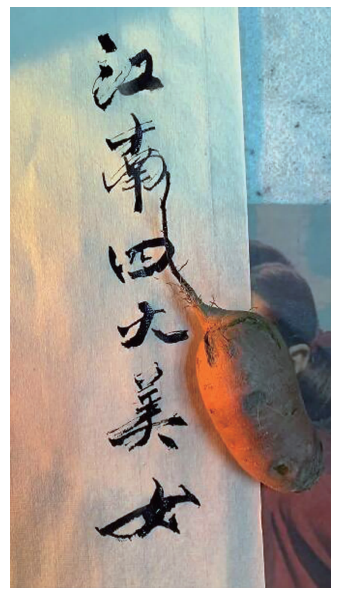 江南四大美女